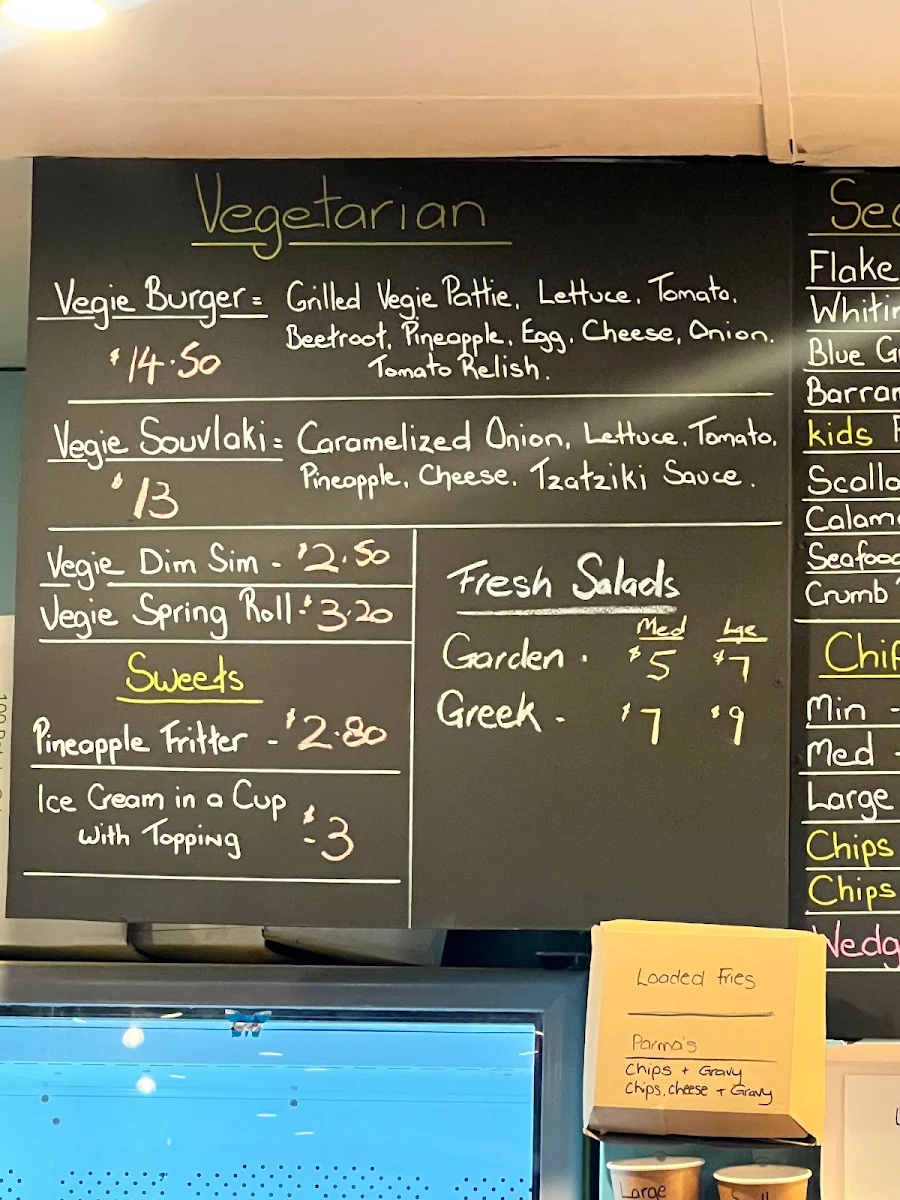 Vegetarian
Vegie Burger = Grilled Vegie Pattie, Lettuce, Tomato,
$14.50 Beetroot, Pineapple, Egg, Cheese, Onion.
Tomato Relish.
Vegie Souvlaki = Caramelized Onion, Lettuce, Tomato,
$13 Pineapple, Cheese. Tzatziki Sauce.
Vegie Dim Sim - $2.50
Vegie Spring Roll - $3.20
Sweets
Pineapple Fritter - $2.80
Ice Cream in a Cup
with Topping - $3
Fresh Salads
Med Lge
Garden - $5 $7
Greek - $7 $9
Flake
Blue
kids
Seafood
Crumb
Min -
Med -
Large
Chips
Chips
Loaded Fries
Parma's
Chips + Gravy
Chips, cheese + Gravy
Large